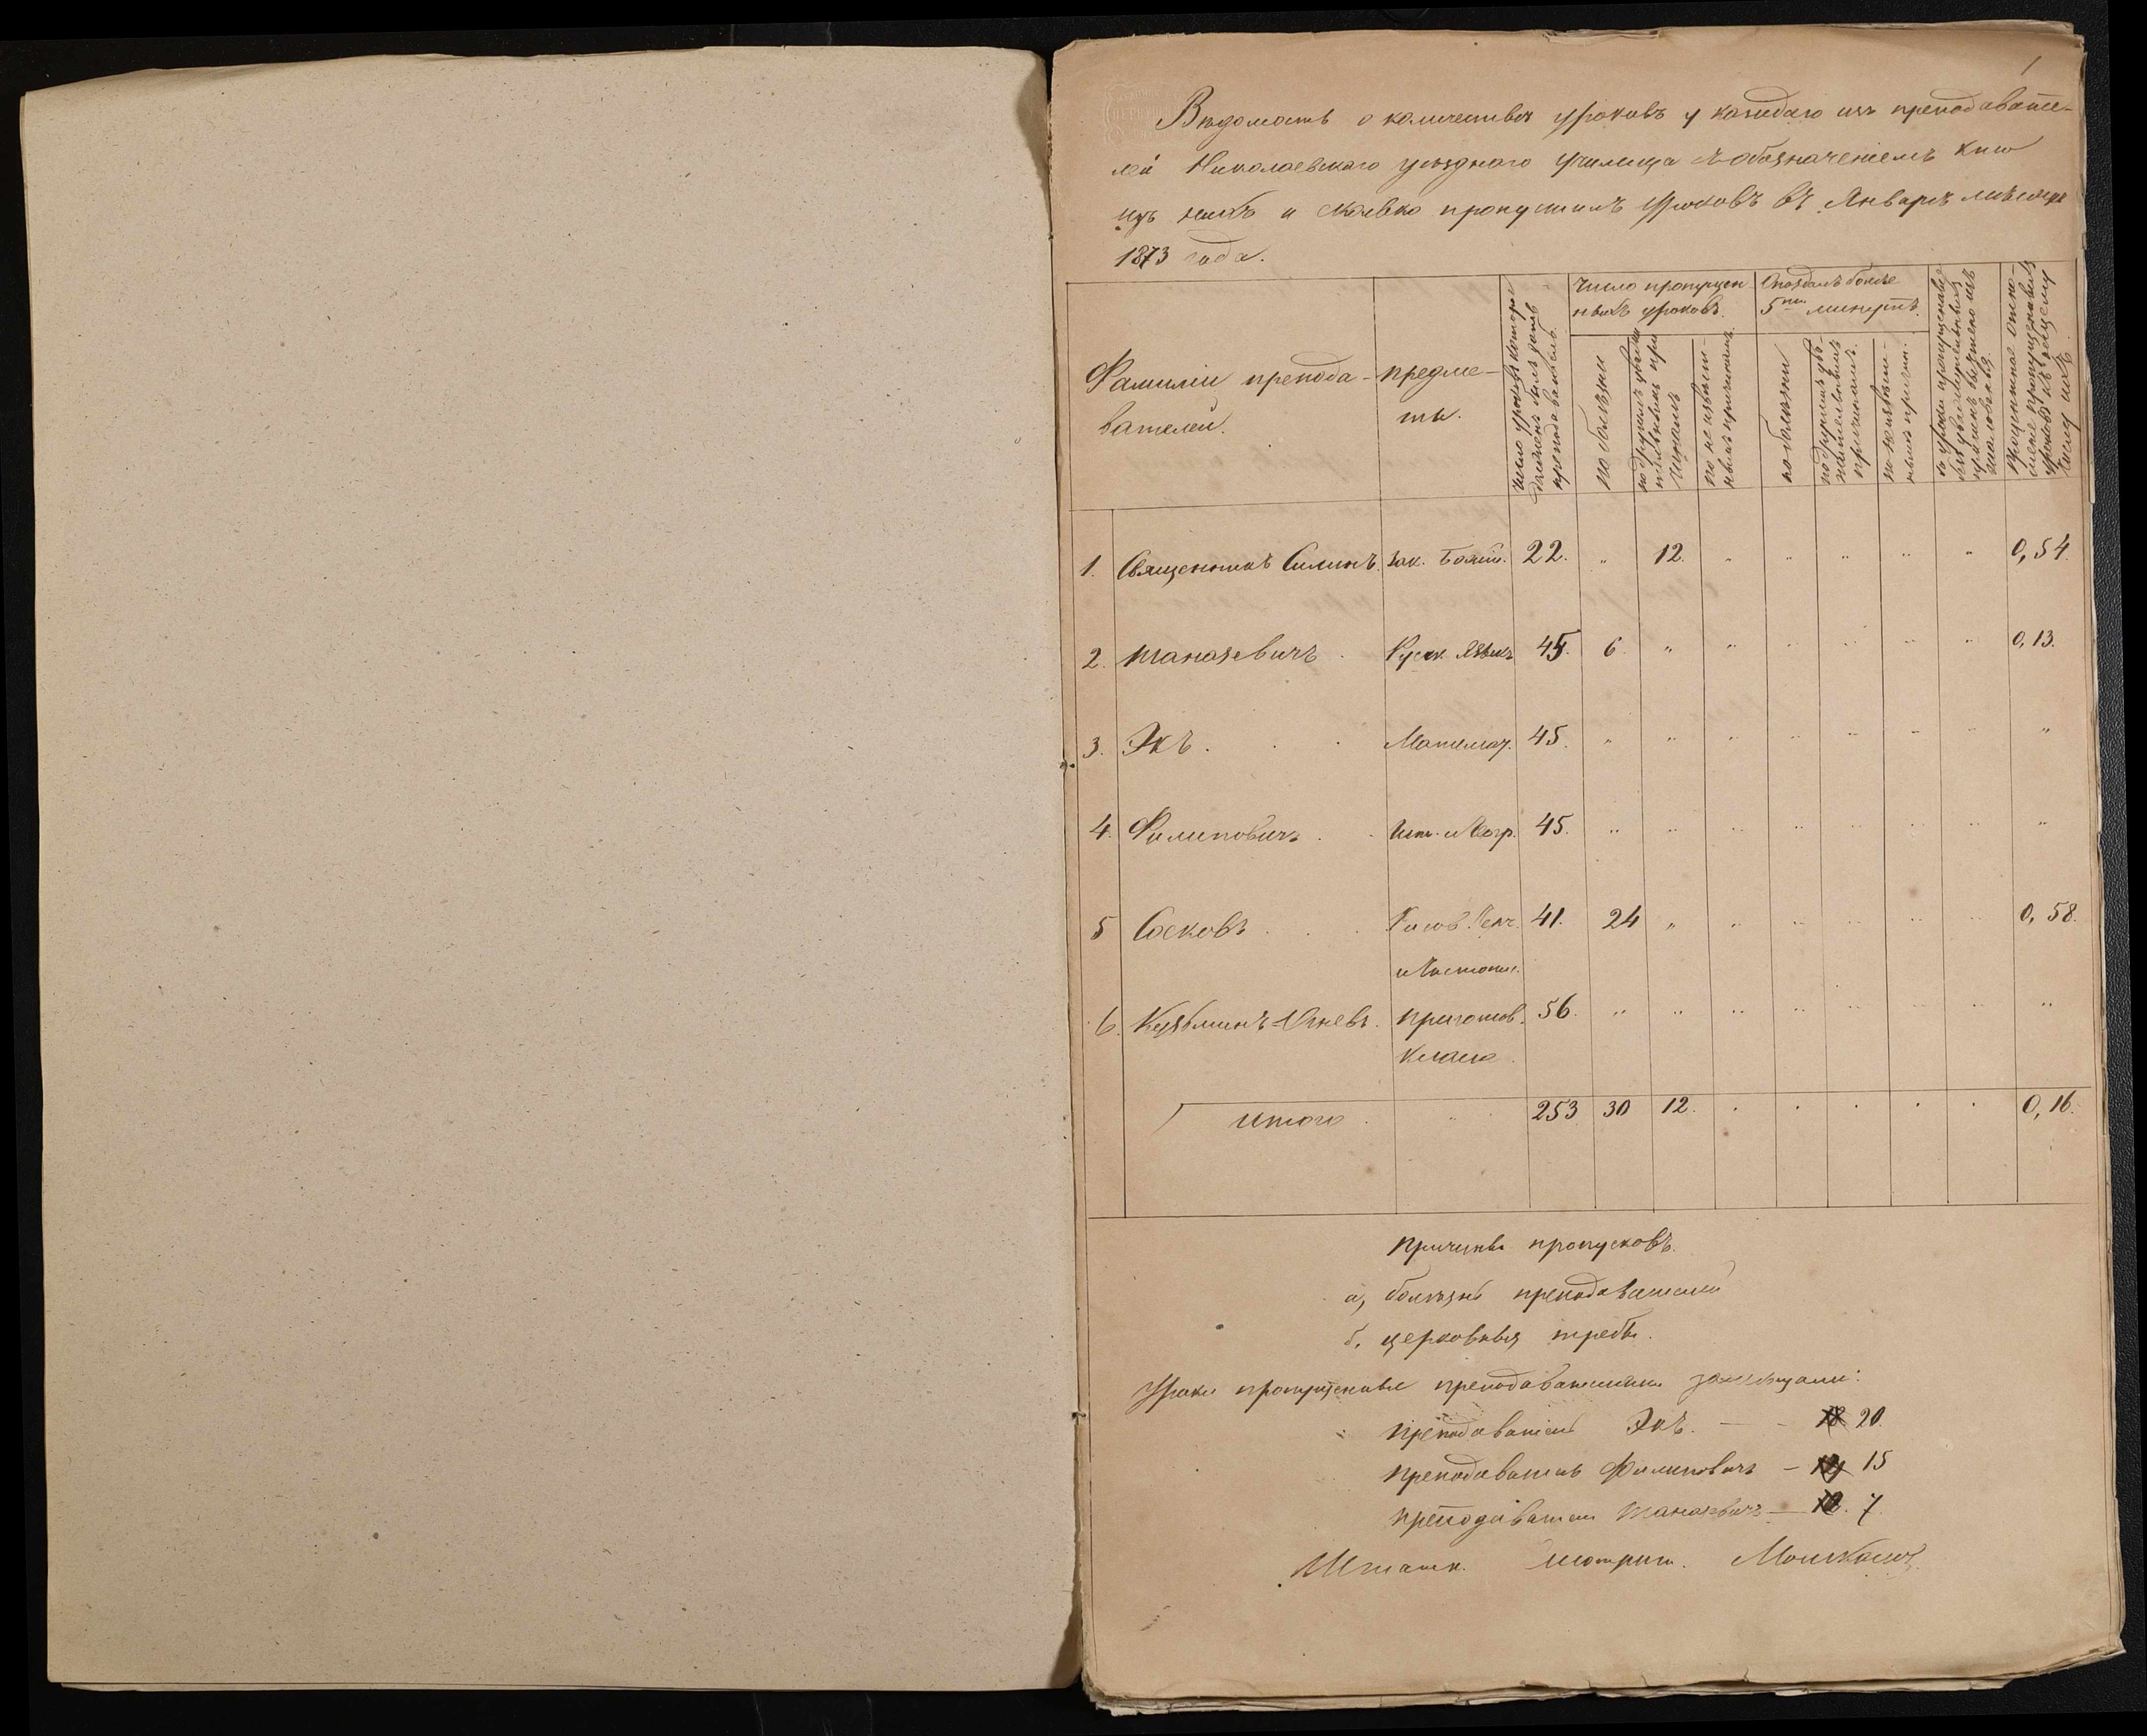 1
Вѣдомость о количествѣ уроковъ у каждаго изъ преподавате-
лей Николаевскаго уѣзднаго училища съ обозначеніемъ кто
изъ нихъ и сколько пропустилъ уроковъ въ Январѣ мѣсяцѣ
1873 года.
Фамиліи препода-
вателей.
Предме-
ты.
Число уроковъ которое
долженъ былъ дать
преподаватель.
Число пропущен
ныхъ уроковъ.
по болѣзни
по другимъ уважи
тельнымъ при
чинамъ
по неизвѣст-
нымъ причинамъ.
Опоздалъ болѣе
5ти минутъ.
по болѣзни
по другимъ ува-
жительнымъ
причинамъ.
по неизвѣст-
нымъ причин.
за уроки пропущенные
безъ уважительныхъ
причинъ вычтено изъ
жалованья.
Процентное отно-
шеніе пропущенныхъ
уроковъ къ общему
числу ихъ.
1. Священникъ Силинъ. Зак. Божій. 22. „ 12. „ „ „ „ „ 0,54.
2. Танасевичъ . Русск. Языкъ 45. 6. „ „ „ „ „ „ 0,13.
3. Экъ . . . Математ. 45. „ „ „ „ „ „ „ „
4. Филиповичъ . . Ист. и Геогр. 45. „ „ „ „ „ „ „ „
5 Сосковъ . . . Рисов. Черч. 41. 24 „ „ „ „ „ „ 0,58.
и Чистопис.
6. Кузьминъ-Огневъ. Приготов. 56. „ „ „ „ „ „ „ „
классъ.
Итого . „ . 253 30 12. . . . . . 0,16.
Причины пропусковъ.
а, болѣзнь преподавателей
б, церковныя требы.
Уроки пропущенные преподавателями замѣщали:
преподаватель Экъ. — - 20.
преподаватель Филиповичъ — 15
преподаватель Танасевичъ — 7.
Штатн. смотрит.